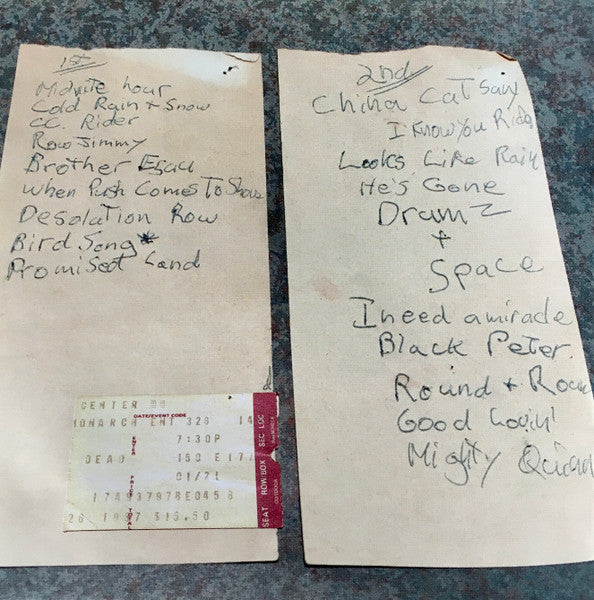 1st
Midnite hour
Cold Rain + Snow
CC. Rider
Row Jimmy
Brother Esau
When Push Comes To Shove
Desolation Row
Bird Song*
Promised Land
CENTER
DATE/EVENT CODE
MONARCH ENT 326 14
ENTER 7:30P
DEAD 150 E17/
01/21
PRICE TOTAL
174937978E0458
26 1987 $16.50
SEAT ROW/BOX SEC LOC
2nd
China Cat Sun
I Know You Rider
Looks Like Rain
He's Gone
Drumz
+
Space
I need a miracle
Black Peter.
Round + Roun
Good Lovin'
Mighty Quinn